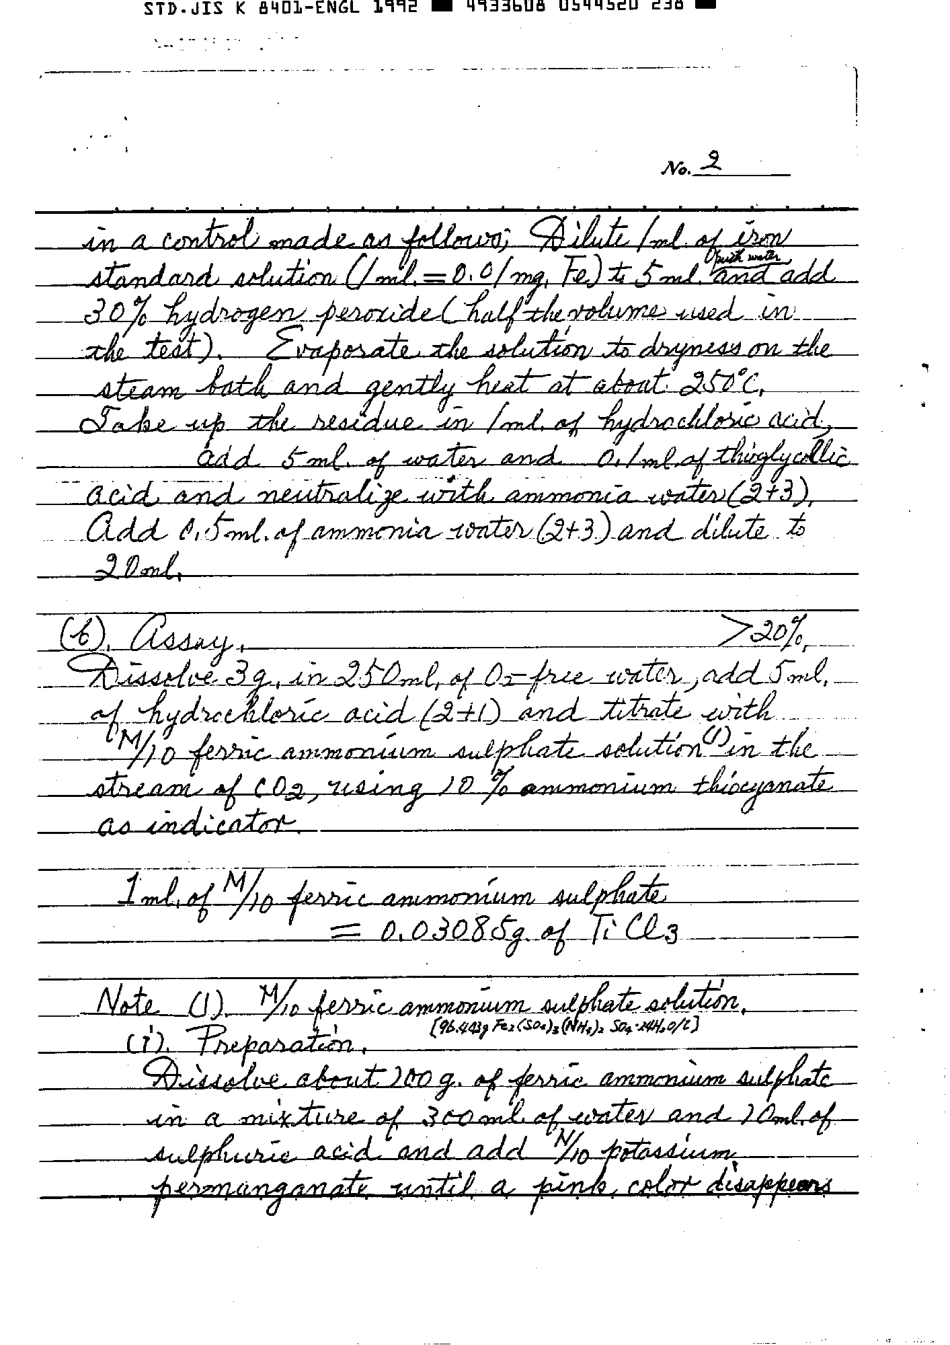 STD.JIS K 8401-ENGL 1992 ■ 4933608 0544520 238 ■
No. 2
in a control made as follows; Dilute 1ml. of iron
standard solution (1ml. = 0.01mg, Fe) to 5ml. with water and add
30% hydrogen peroxide (half the volume used in
the test). Evaporate the solution to dryness on the
steam bath and gently heat at about 250°C.
Take up the residue in 1ml. of hydrochloric acid,
add 5ml. of water and 0.1ml. of thioglycollic
acid and neutralize with ammonia water (2+3).
Add 0.5ml. of ammonia water (2+3) and dilute to
20ml.
(6). Assay. >20%.
Dissolve 3g. in 250ml. of O2-free water, add 5ml.
of hydrochloric acid (2+1) and titrate with
M/10 ferric ammonium sulphate solution(1) in the
stream of CO2, using 10% ammonium thiocyanate
as indicator.
1ml. of M/10 ferric ammonium sulphate
= 0.03085g. of TiCl3
Note (1). M/10 ferric ammonium sulphate solution.
[96.443g Fe2(SO4)3(NH4)2 SO4·24H2O/L]
(i). Preparation.
Dissolve about 100g. of ferric ammonium sulphate
in a mixture of 300ml. of water and 10ml. of
sulphuric acid and add N/10 potassium
permanganate until a pink color disappears